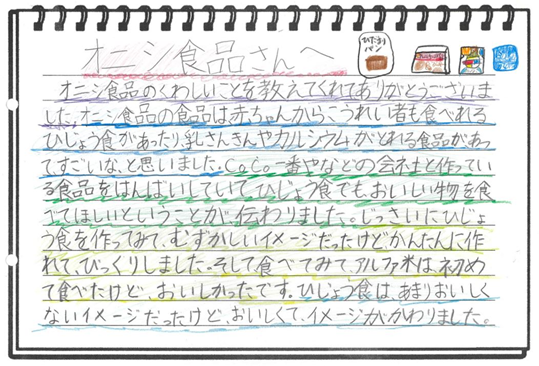 オニシ食品さんへ
オニシ食品のくわしいことを教えてくれてありがとうございま
した。オニシ食品の食品は赤ちゃんからこうれい者も食べれる
ひじょう食があったり、乳さんきんやカルシウムがとれる食品があっ
てすごいな、と思いました。CoCo一番やなどの会社と作ってい
る食品をはんばいしていてひじょう食でも、おいしい物を食
べてほしいということが伝わりました。じっさいにひじょ
う食を作ってみて、むずかしいイメージだったけどかんたんに作
れて、びっくりしました。そして食べてみて、アルファ米は、初め
て食べたけど、おいしかったです。ひじょう食は、あまりおいしく
ないイメージだったけど、おいしくて、イメージがかわりました。
パン